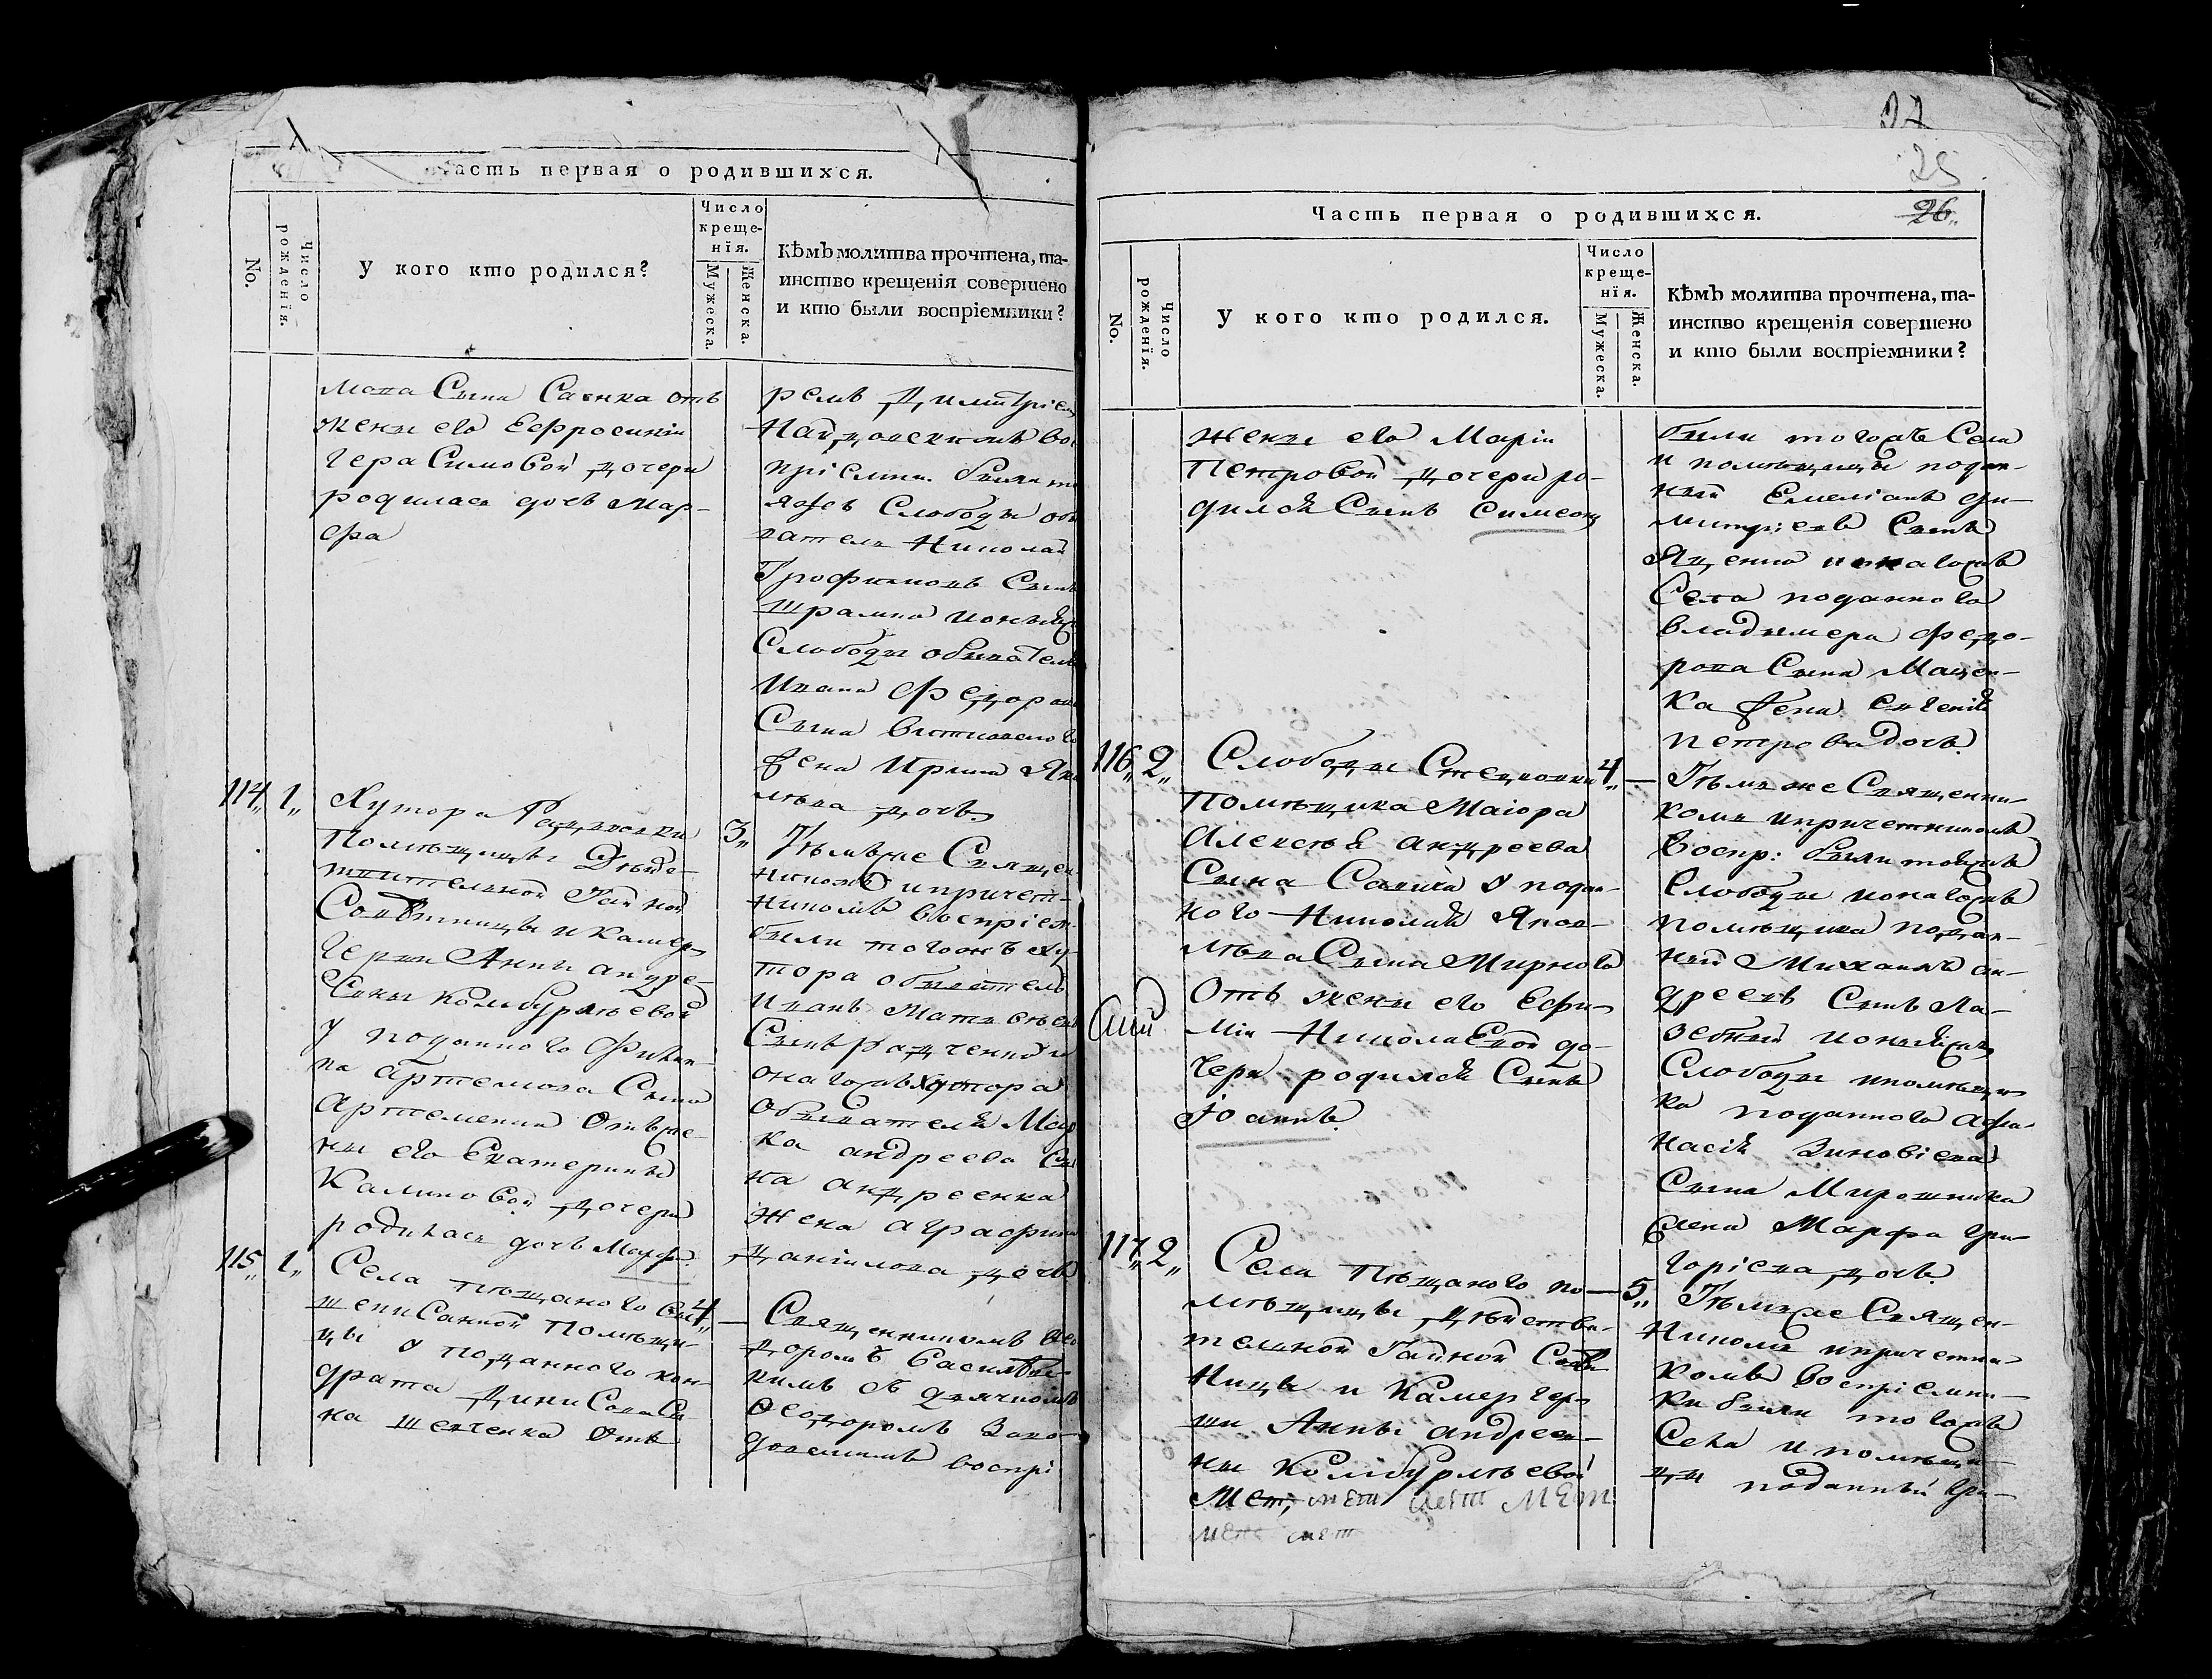 Часть первая о родившихся.
No.
Число рожденія.
У кого кто родился?
Число
креще-
нія.
Мужеска.
Женска.
Кѣмъ молитва прочтена, та-
инство крещенія совершено
и кто были воспріемники?
мова Сына Саенка отъ
жены его Ефросиніи
Герасимовой дочери
родилась дочь Мар-
фа
ремъ Димитріем
воспріемни. были то
яжъ Слободы обы
вателъ Николай
Трофимовъ Сынъ
Шрамко ионыя
Слободы обывателя
Ивана Федорова
Сына
жена Ирина Яко
влѣва дочь
114,, 1,,
Хутора
Помѣщицы Дѣйс-
твительной Тайной
Совѣтницы и Камер-
герши Анны андре-
евны Колибурлѣевой
у поданного Филип-
па артемова Сына
артеменка Отъ же-
ны его Екатерины
Калиновой дочери
родилась дочь Марфа
3,,
Тѣмъже Священ
никомъ ипричет-
никомъ воспріем.
были тогожъ ху-
тора обыватель
Иванъ Матвѣевъ
Сынъ Радченко и
оногожъ Хутора
обывателя Мар
ка андреева Сы
на андреенка
жена аграфина
даніилова дочь
115,, 1,,
Села пѣщаного
помѣщи-
цы у поданного кон-
драта Динисова Сы
на шевченка Отъ
4,, —
Священникомъ Фео
доромъ Василев-
кимъ съ дячкомъ
Феодоромъ Заво-
довскимъ воспрі
27
25
26,,
Часть первая о родившихся.
No.
Число рожденія.
У кого кто родился.
Число
креще-
нія.
Мужеска.
Женска.
Кѣмъ молитва прочтена, та-
инство крещенія совершено
и кто были воспріемники?
жены его Маріи
Петровой дочери ро-
дился Сынъ Симеонъ
были тогожъ Села
и помѣщицы подан-
ный Емеліанъ ди-
митріевъ Сынъ
Яценко ионагожъ
Села поданного
Владимера Федо-
рова Сына Мацен-
ка жена Евгенія
петрова дочь
116,, 2,,
Слободы Стецковки
помѣщика Маіора
Алексѣя андреева
Сына Савича у подан-
ного Николая Яков-
лѣва Сына Мирного
Отъ жены его Ефи-
міи Николаевой до-
чери родился Сынъ
Іоаннъ
4,, —
Тѣмъ же Священни-
комъ ипричетникомъ
Воспр: были тояжъ
Слободы ионагожъ
помѣщика подан-
ный Михаилъ ан-
дреевъ Сынъ Ла-
зебный ионыяжъ
Слободы ипомѣщи-
ка поданного афа-
насія Зиновіева
Сына Мирошника
жена Марфа Гри-
горіева дочь
117,, 2,,
Села Пѣщаного по-
мѣщицы дѣйстви-
телной Тайной Совѣт-
ницы и Камергер-
ши Анны андреев-
ны Колибурлѣевой
Мет, мет мет мет
мет мет
— 5,,
Тѣмъже Священ-
никомъ ипричетни-
комъ воспріемни-
ки были тогожъ
Села и помѣщи-
цы поданный Гри-